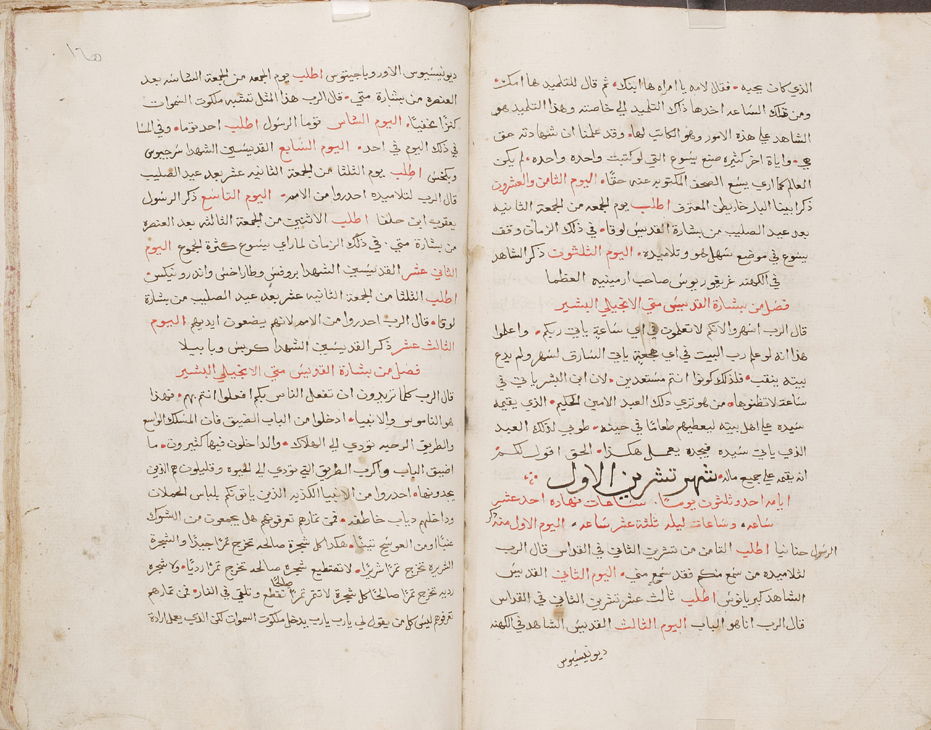 الذي كان يحبه • فقال لامه يا امراه ها ابنك • ثم قال للتلميد ها امك •
ومن تلك الساعه اخدها ذاك التلميد الي خاصته وهذا التلميد هو
الشاهد علي هذه الامور وهو الكاتب لها • وقد علمنا ان شهادته حق
هي • واياة اخر كثيره صنع يسوع التي لو كتبت واحده واحده • لم يكن
العالم كما اري يسع الصحف المكتوبه عنه حقا • اليوم الثامن والعشرون
ذكر ابينا البار خاريطن المعترف اطلب يوم الجمعه من الجمعة الثانيه
بعد عيد الصليب من بشارة القديس لوقا • في ذلك الزمان وقف
يسوع في موضع سهل هو وتلاميده • اليوم الثلثون ذكر الشاهد
في الكهنه غريغوريوس صاحب ارمينيه العظما
فصل من بشارة القديس متي الانجيلي البشير
قال الرب اسهروا لانكم لا تعلمون في اي ساعة ياتي ربكم • واعلموا
هذا انه لو علم رب البيت في اي هجعة ياتي السارق لسهر ولم يدع
بيته ينقب • فلذلك كونوا انتم مستعدين • لان ابن البشر ياتي في
ساعة لا تظنوها • من هو تري دلك العبد الامين الحكيم • الذي يقيمه
سيده علي اهل بيته ليعطيهم طعامًا في حينه • طوبي لذلك العبد
الذي ياتي سيده فيجده يعمل هكذا • الحق اقول لكم
انه يقيمه علي جميع ماله • شهر تشرين الاول
ايامه احد وثلثون يومًا • ساعات نهاره احد عشر
ساعه • وساعات ليله ثلثة عشر ساعه • اليوم الاول منه ذكر
الرسول حنانيا اطلب الثامن من تشرين الثاني في القداس قال الرب
لتلاميده من سمع منكم فقد سمع مني • اليوم الثاني القديس
الشاهد كبريانوس اطلب ثالث عشر تشرين الثاني في القداس
قال الرب انا هو الباب اليوم الثالث القديس الشاهد في الكهنه
ديونيسيوس
ديونيسيوس الاوروباجيتوس اطلب يوم الجمعه من الجمعة التاسعه بعد
العنصره من بشارة متي • قال الرب هذا المثل تشبه ملكوت السموات
كنزًا مخفيًا • اليوم السادس توما الرسول اطلب احد توما • وفي المسا
في ذلك اليوم في احد • اليوم السابع القديسين الشهدا سرجيوس
وبكخس اطلب يوم الثلثا من الجمعة الثانية عشر بعد عيد الصليب
قال الرب لتلاميده احدروا من الامم • اليوم التاسع ذكر الرسول
يعقوب ابن حلفا اطلب الاثنين من الجمعة الثالثه بعد العنصره
من بشارة متي • في ذلك الزمان لما راي يسوع كثرة الجموع اليوم
الثاني عشر القديسين الشهدا بروفس وطاراخس واندرونيكس •
اطلب الثلثا من الجمعة الثانيه عشر بعد عيد الصليب من بشارة
لوقا • قال الرب احدروا من الامم لانهم يضعون ايديهم اليوم
الثالث عشر ذكر القديسين الشهدا كربس وبابيلا
فصل من بشارة القديس متي الانجيلي البشير
قال الرب كلما تريدون ان تفعل الناس بكم افعلوا انتم بهم • فهذا
هو الناموس والانبيا • ادخلوا من الباب الضيق فان المسلك الواسع
والطريق الرحبه تودي الي الهلاك • والداخلون فيها كثيرون • ما
اضيق الباب واكرب الطريق التي تودي الي الحيوه وقليلون هم الذين
يجدونها • احدروا من الانبيا الكذبه الذين ياتونكم بلباس الحملان
وداخلهم دياب خاطفه • فمن ثمارهم تعرفونهم هل يجمعون من الشوك
عنبًا او من العوسج تينًا • هكذا كل شجرة صالحه تخرج ثمرًا جيدًا والشجرة
الشريره تخرج ثمرًا شريرًا • لا تستطيع شجرة صالحه تخرج ثمرًا رديًا • ولا شجره
رديه تخرج ثمرًا صالحًا كل شجرة لا تثمر ثمرًا صالحًا تقطع وتلقي في النار • فمن ثمارهم
تعرفوهم ليس كل من يقول لي يارب يارب يدخل ملكوت السموات لكن الذي يعمل ارادة